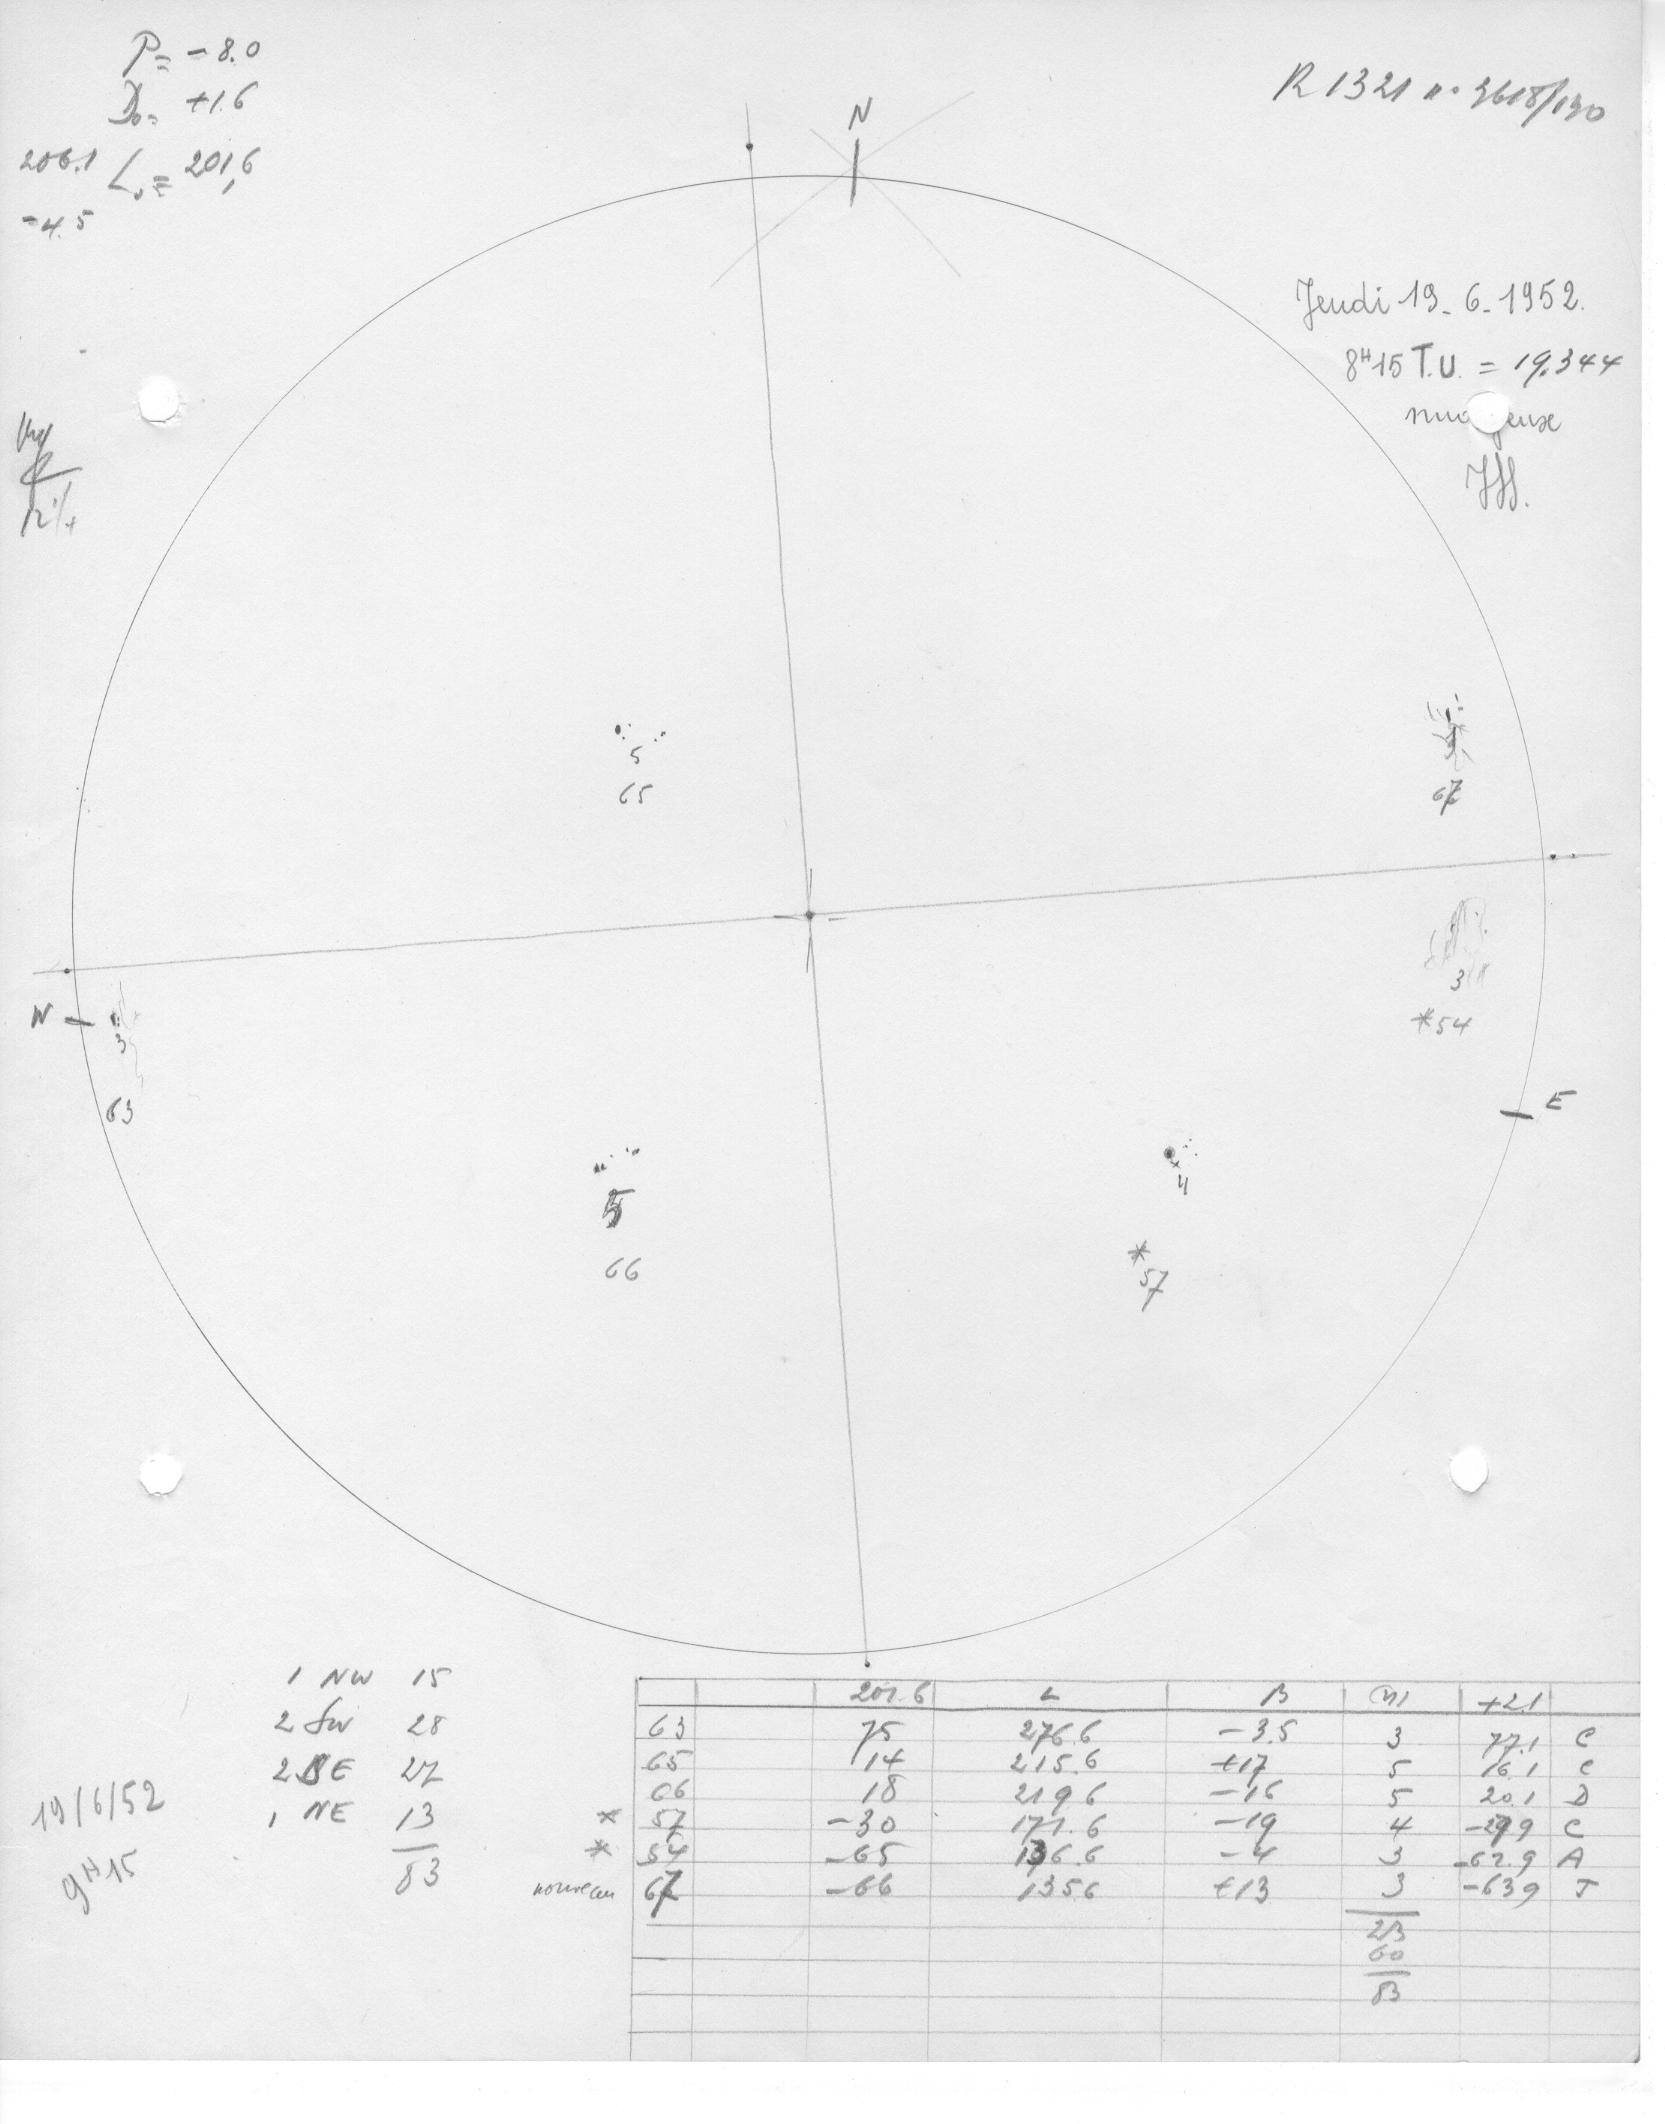 P = -8.0
D₀ = +1.6
206.1 L₀ = 201,6
-4.5
R 1321 n° 3618/130
N
Jeudi 19-6-1952.
8H15 T.U. = 19.344
nuageux
5
65
67
3
*54
W
3
63
E
5
66
4
*
57
1 NW 15
2 SW 28
2 SE 27
1 NE 13
83
19/6/52
9H15
201.6 L B +2.1
63 75 276.6 -3.5 3 77.1 C
65 14 215.6 +17 5 16.1 C
66 18 219 6 -16 5 20.1 D
* 57 -30 171.6 -19 4 -27 9 C
* 54 -65 136.6 -4 3 -62.9 A
nouveau 67 -66 135 6 +13 3 -63 9 J
23
60
83